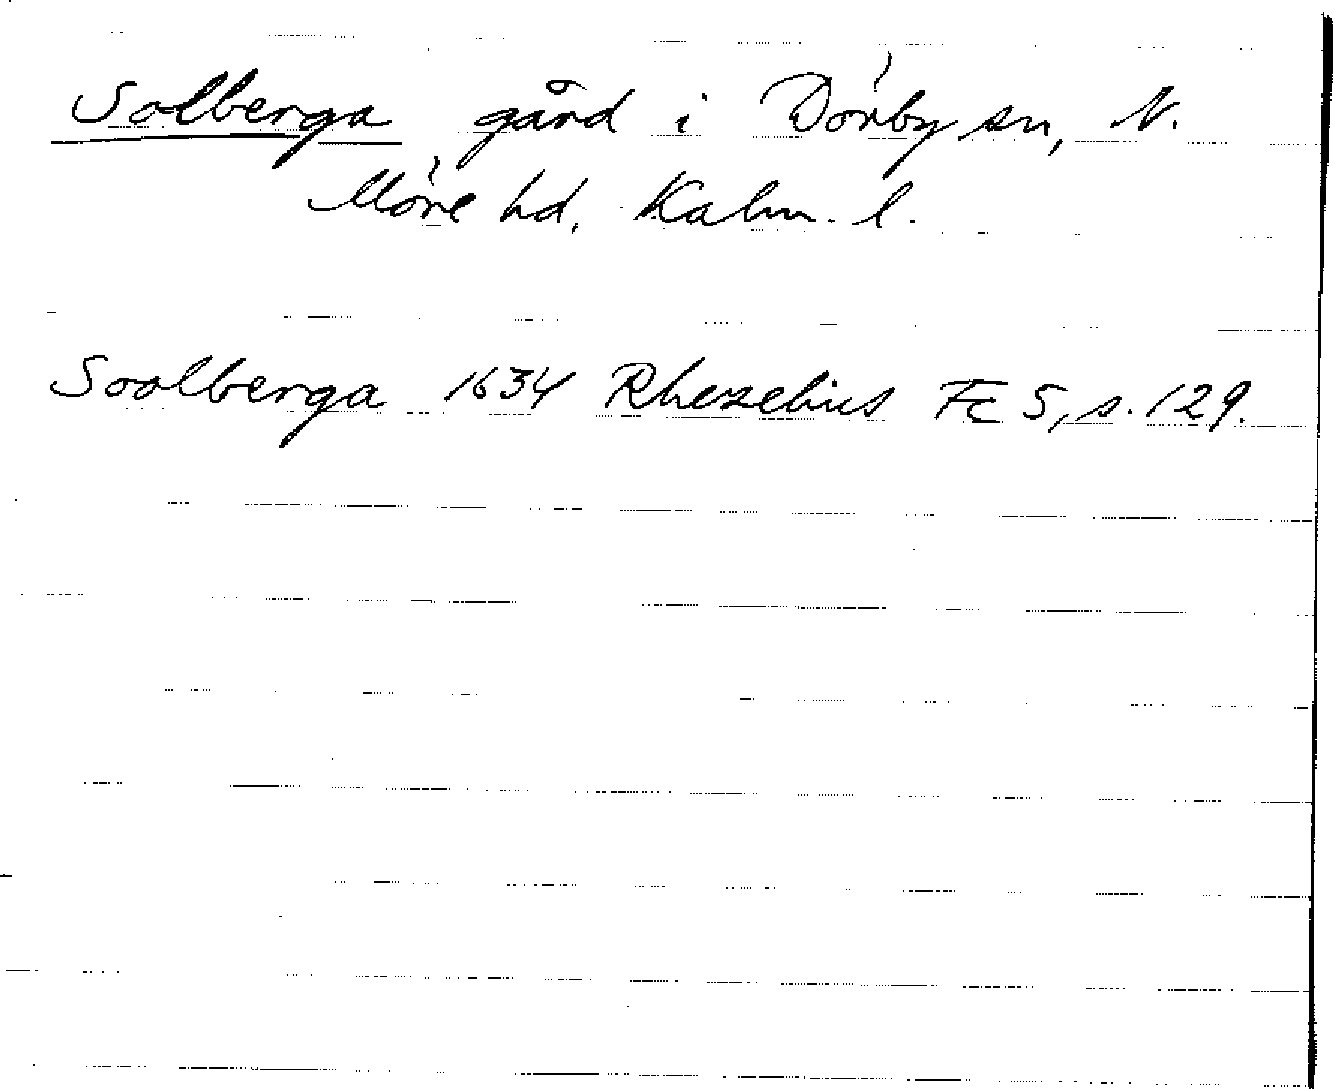 Solberga gård i Dörby sn, N.
Möre hd, Kalm. l.
Soolberga 1634 Rhezelius Fc 5, s. 129.